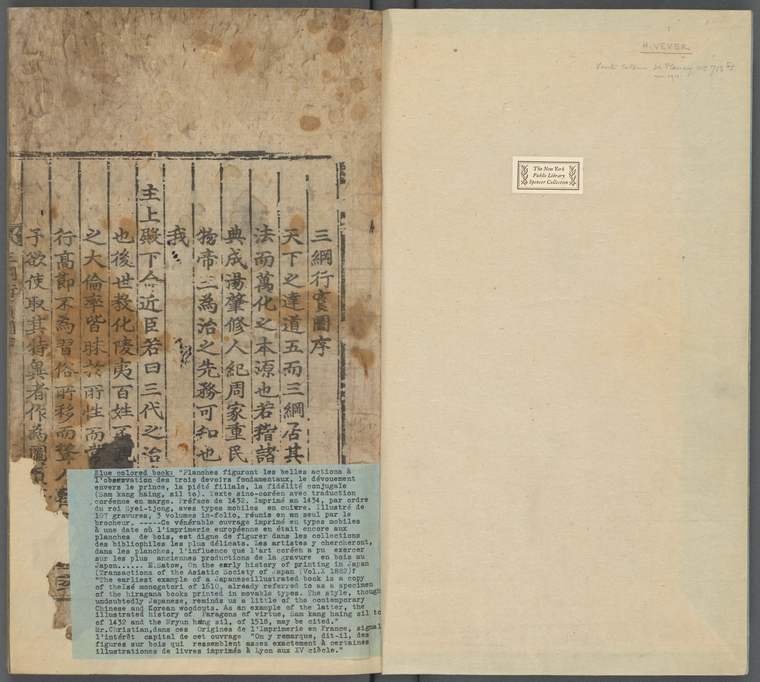 三綱行實圖序
天下之達道五而三綱居其
法而萬化之本源也若稽諸
典成湯肇修人紀周家重民
物帝王為治之先務可知也
我
主上殿下命近臣若曰三代之治
也後世教化陵夷百姓不
之大倫率皆昧於所性而常
行高節不為習俗所移而聳人
予欲使取其特異者作為圖
Blue colored book: "Planches figurant les belles actions à
l'observation des trois devoirs fondamentaux, le dévouement
envers le prince, la piété filiale, la fidélité conjugale
(Sam kang haing, sil to). Texte sino-coréen avec traduction
coréenne en marge. Préface de 1432. Imprimé en 1434, par ordre
du roi Syei-tjong, aves types mobiles en cuivre. Illustré de
107 gravures, 3 volumes in-folio, réunis en un seul par le
brocheur. -----Ce vénérable ouvrage imprimé en types mobiles
à une date oh l'imprimerie européenne en était encore aux
planches de bois, est digne de figurer dans les collections
des bibliophiles les plus délicats. Les artistes y chercheront,
dans les planches, l'influence que l'art coréen a pu exercer
sur les plus anciennes productions de la gravure en bois au
Japon...... E.Satow, On the early history of printing in Japan
(Transactions of the Asiatic Society of Japan (Vol.X 1882):
"The earliest example of a Japaneseillustrated book is a copy
of theIsé monogatori of 1610, already referred to as a specimen
of the hiragana books printed in movable types. The style, though
undoubtedly Japanese, reminds us a little of the contemporary
Chinese and Korean woodcuts. As an example of the latter, the
illustrated history of Paragons of virtue, Sam kang haing sil to
of 1432 and the Nryun haing sil, of 1518, may be cited."
Mr.Christian,dans ces Origines de l'Imprimerie en France, signal
l'intérêt capital de cet ouvrage "On y remarque, dit-il, des
figures sur bois qui ressemblent assez exactement à certaines
illustrationes de livres imprimés à Lyon aux XV ciècle."
H. VEVER
Vente Collin de Plancy No 713
The New York
Public Library
Spencer Collection